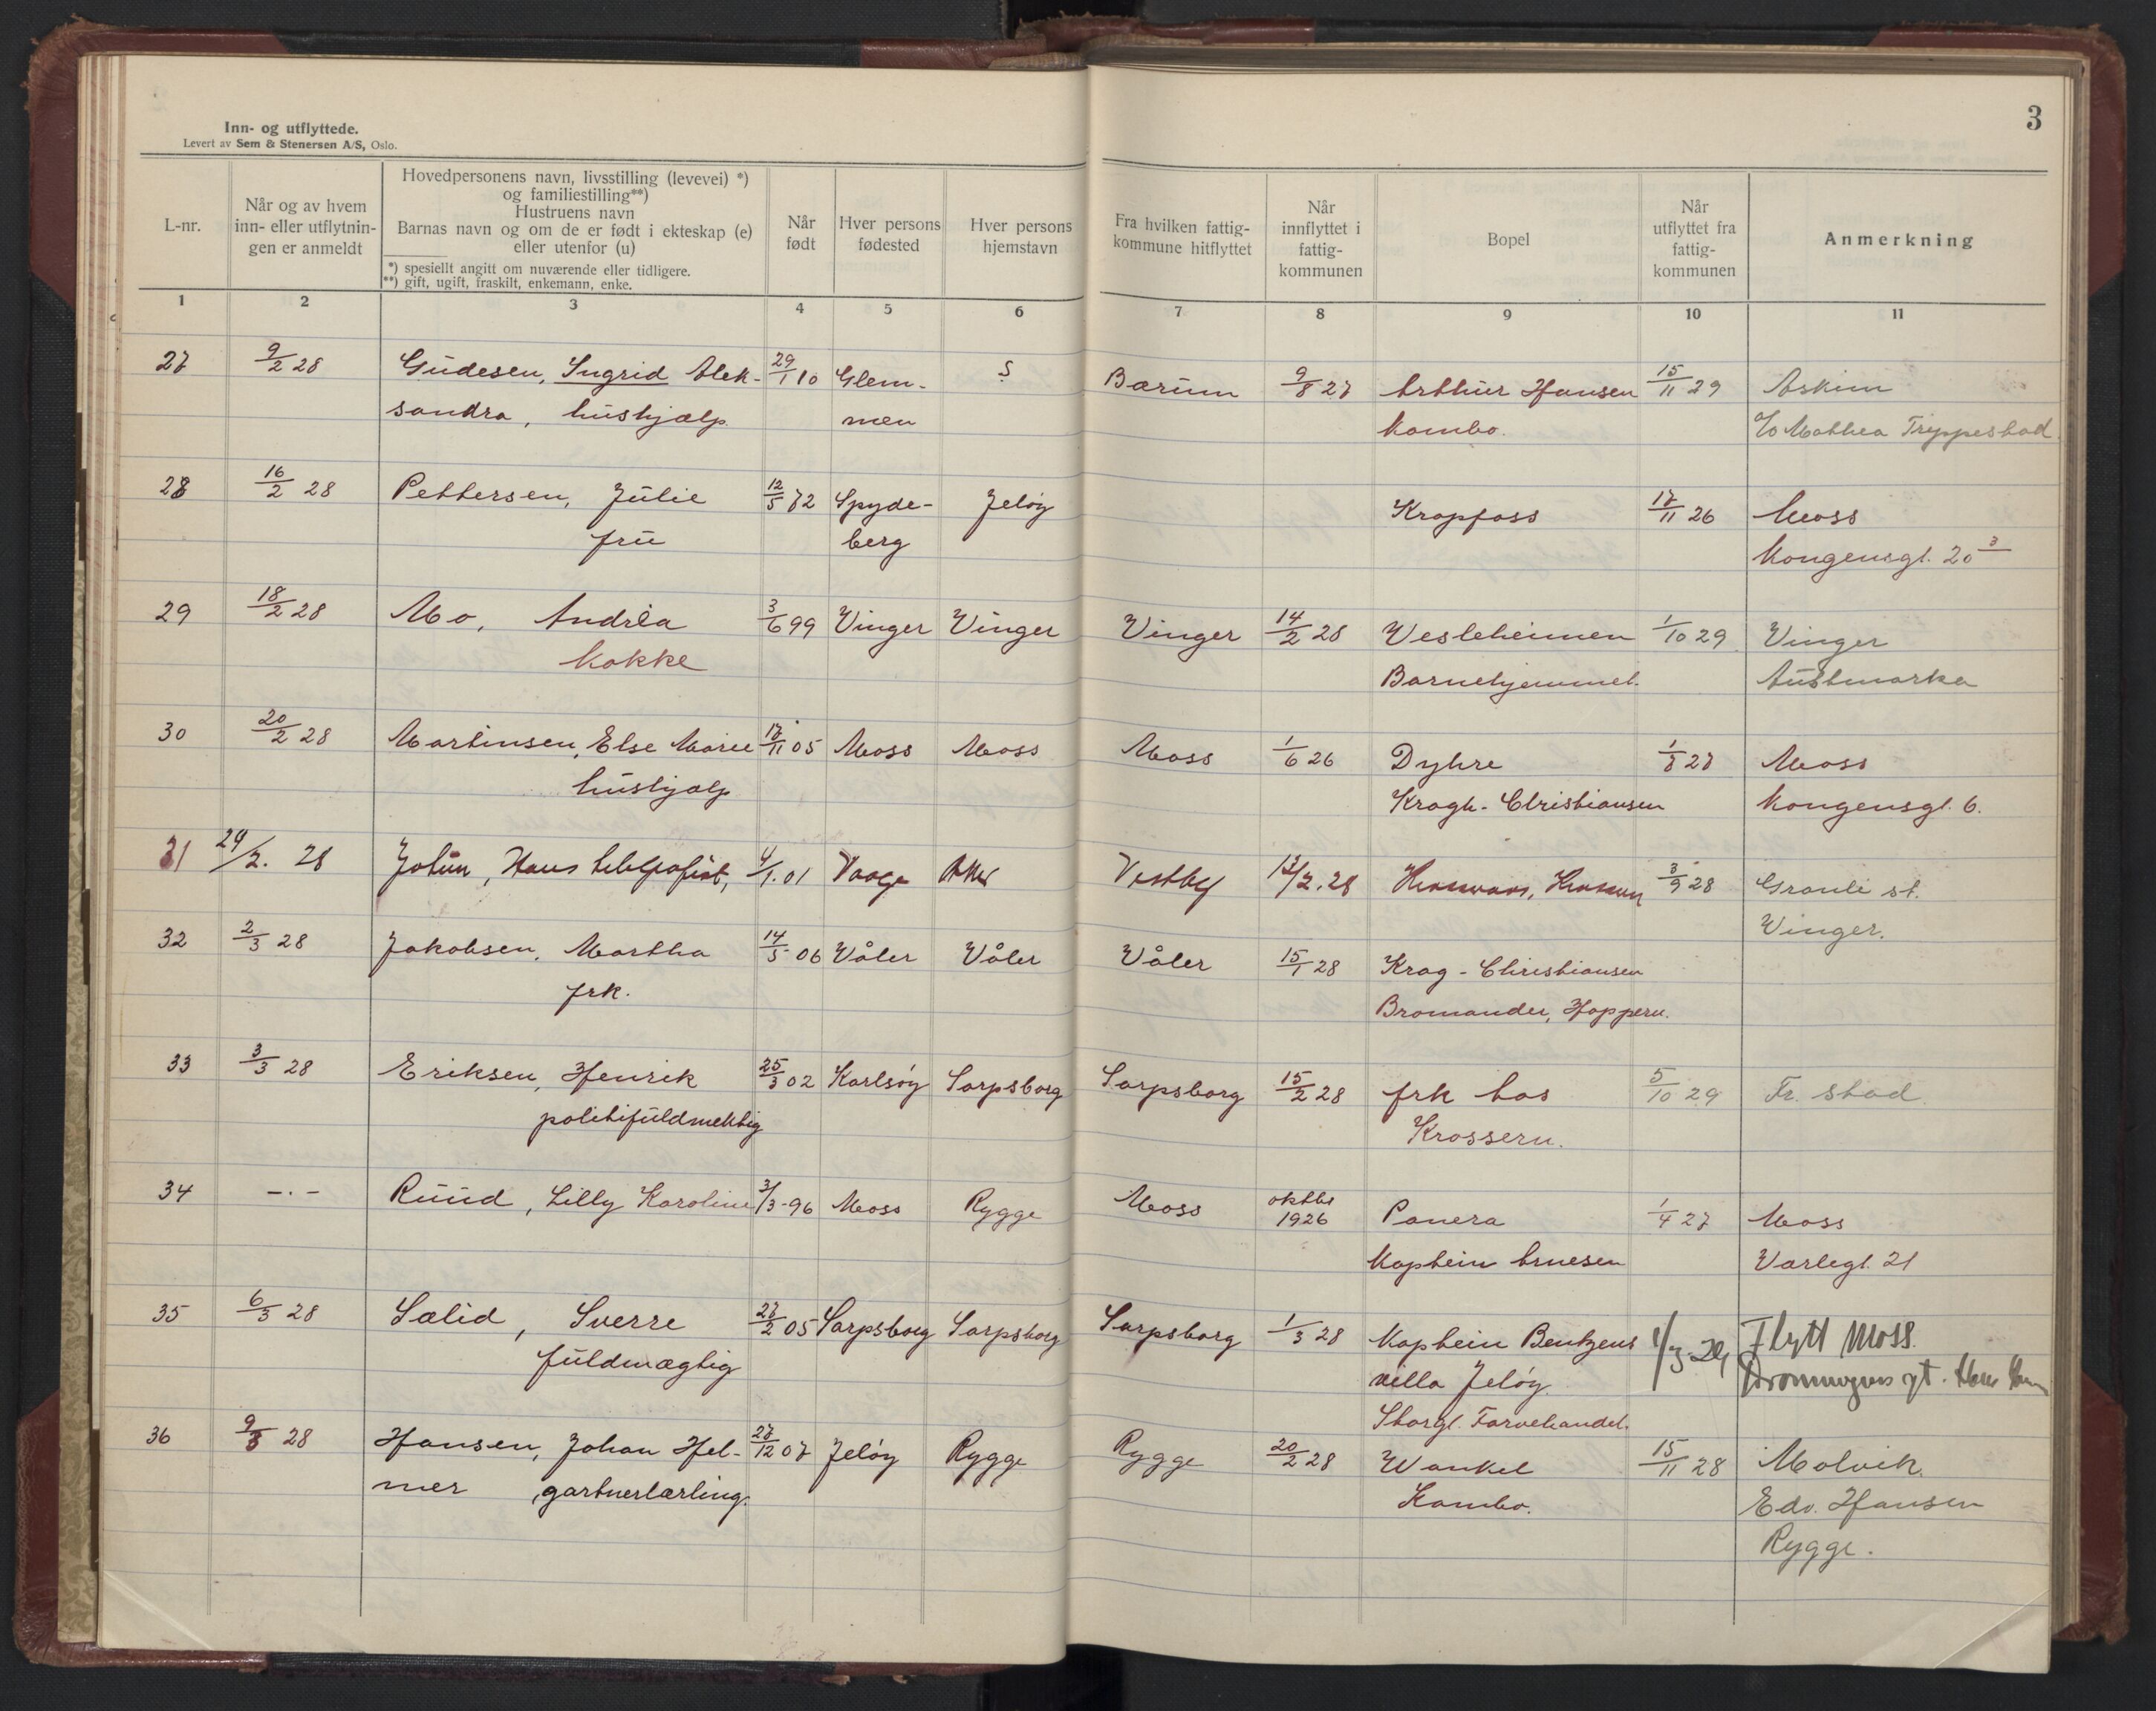 3
Inn- og utflyttede.
Levert av Sem & Stenersen A/S, Oslo.
L-nr.
Når og av hvem
inn- eller utflytnin-
gen er anmeldt
Hovedpersonens navn, livsstilling (levevei) *)
og familiestilling**)
Hustruens navn
Barnas navn og om de er født i ekteskap (e)
eller utenfor (u)
*) spesielt angitt om nuværende eller tidligere.
**) gift, ugift, fraskilt, enkemann, enke.
Når
født
Hver persons
fødested
Hver persons
hjemstavn
Fra hvilken fattig-
kommune hitflyttet
Når
innflyttet i
fattig-
kommunen
Bopel
Når
utflyttet fra
fattig-
kommunen
Anmerkning
1 2 3 4 5 6 7 8 9 10 11
27 9/2 28 Gudesen, Ingrid Alek- 29/1 10 Glem- Bærum 9/8 27 Arthur Hansen 15/11 29 Askim
sandra, hushjælp. men Kambo. c/o Mathea Trippestad.
28 16/2 28 Pettersen, Julie 12/5 72 Spyde- Jeløy Krapfoss 17/11 26 Moss
fru berg Kongensgt. 20 3
29 18/2 28 Mo, Andrea 3/6 99 Vinger Vinger Vinger 14/2 28 Vesleheimen 1/10 29 Vinger
kokke Barnehjemmet. Austmarka
30 20/2 28 Martinsen, Else Marie 17/11 05 Moss Moss Moss 1/6 26 Dyhre 1/8 27 Moss
hushjælp Kragh-Christiansen Kongensgt. 6.
31 29/2. 28 Hans telegrafist, 4/1. 01 Vaage Aker Vestby 17/2. 28 3/9 28 Granli st.
Vinger.
32 2/3 28 Jakobsen, Martha 14/5 06 Våler Våler Våler 15/1 28 Krag-Christiansen
frk. Bromander, Hoppern.
33 3/3 28 Eriksen, Henrik 25/3 02 Karlsøy Sarpsborg Sarpsborg 15/2 28 frk Aas 5/10 29 Fr. stad.
politifuldmektig Krossern.
34 -.- Ruud, Lilly Karoline 3/3-96 Moss Rygge Moss oktbr 1926 Panera 1/4 27 Moss
Kaptein Arnesen Varlegt. 21
35 6/3 28 Sælid, Sverre 27/2 05 Sarpsborg Sarpsborg Sarpsborg 1/3 28 Kaptein Bentzens Flytt Moss.
fuldmægtig villa Jeløy Dronningens gt.
Storgt. Farvehandel.
36 9/3 28 Hansen, Johan Hel- 27/12 07 Jeløy Rygge Rygge 20/2 28 Wankel 15/11 28 Molvik.
mer gartnerlærling. Kambo. Edv. Hansen
Rygge.